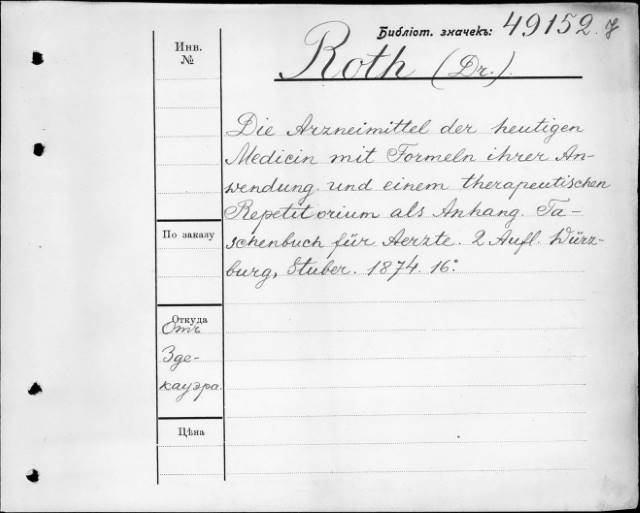 Библіот. значекъ: 49152.
Инв.
№
Roth (Dr.).
Die Arzneimittel der heutigen
Medicin mit Formeln ihrer An-
wendung und einem therapeutischen
Repetitorium als Anhang. Ta-
schenbuch für Aerzte. 2 Aufl. Würz-
burg, Stuber. 1874. 16°.
По заказу
Откуда
Отъ
Зде-
кауэра.
Цѣна